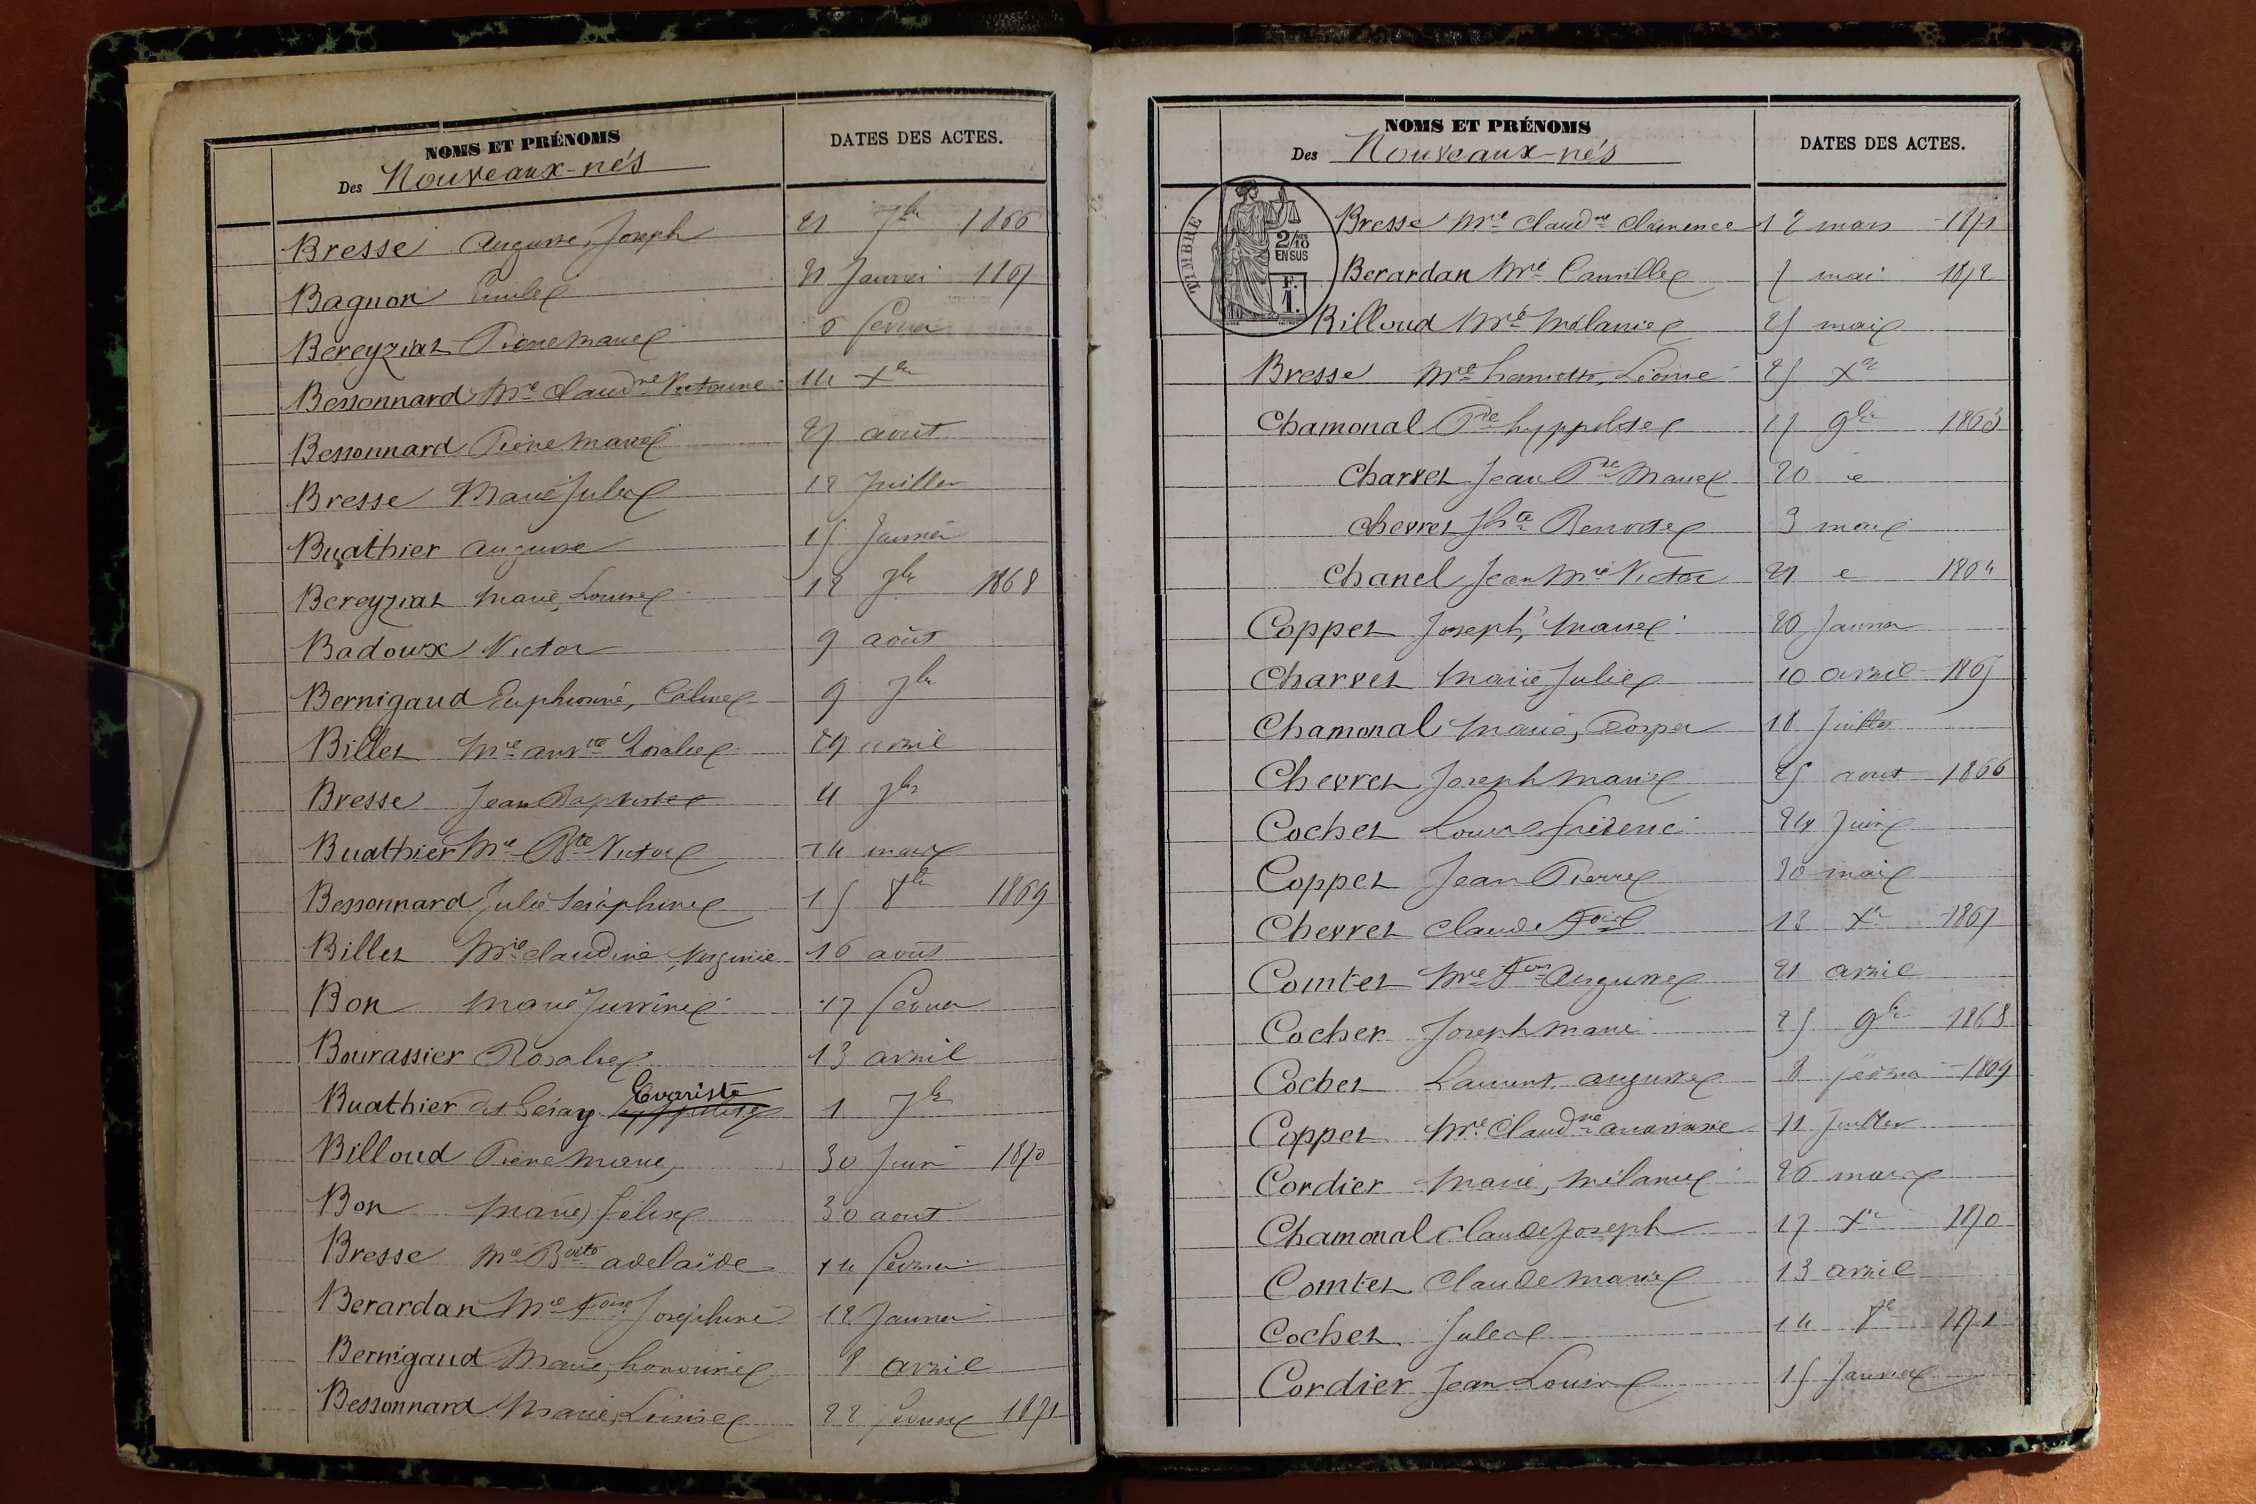 NOMS ET PRÉNOMS
Des Nouveaux-nés
DATES DES ACTES.
Bresse Auguste, Joseph 21 7bre 1866
Bagnon Emile 21 Janvier 1867
Bereyziat Pierre Marie 6 février
Bessonnard Mie Claudne Victorine 14 Xre
Bessonnard Pierre Marie 27 août
Bresse Marie Jules 12 Juillet
Buathier Auguste 15 Janvier
Bereyziat Marie, Louise 12 7bre 1868
Badoux Victor 9 août
Bernigaud Euphrosine, Céline 9 7bre
Billet Mie Rosalie 29 avril
Bresse Jean Baptiste 4 7bre
Buathier Mie Bte Victor 14 mars
Bessonnard Julie Séraphine 15 8bre 1869
Billet Mie Claudine, Virginie 16 août
Bon Marie 17 février
Bourassier Rosalie 13 avril
Buathier dit Géray Evariste 1 7bre
Billoud Pierre Marie, 30 Juin 1870
Bon Marie, Félix 30 août
Bresse Mie Adelaïde 14 février
Berardan Mie Fçoise Joséphine 12 Janvier
Bernigaud Marie, honorine 8 avril
Bessonnard Marie, Louise 22 février 1871
NOMS ET PRÉNOMS
Des Nouveaux-nés
DATES DES ACTES.
TIMBRE
2/10 EN SUS
F. 1.
Bresse Mie Claudne Clémence 12 mars 1871
Berardan Mie Camille 7 mai 1872
Billoud Mie Mélanie 25 mai
Bresse Mie henriette, Léonie 25 Xre
Chamonal Pre hyppolite 17 9bre 1863
Charvet Jean Pre Marie 20 e
Chevret Jh Benoite 3 mai
Chanel Jean Mie Victor 21 e 1864
Coppet Joseph, Marie 26 Janvier
Charvet Marie Julie 10 avril 1865
Chamonal Marie, Prosper 18 Juillet
Chevret Joseph Marie 25 aout 1866
Cochet Louise frédéric 24 Juin
Coppet Jean Pierre 30 mai
Chevret Claude Fçois 12 Xre 1867
Comtet Mie Fçois Auguste 21 avril
Cochet Joseph Marie 25 9bre 1868
Cochet Laurent, Auguste 8 février 1869
Coppet Mie Claudne 11 Juillet
Cordier Marie, Mélanie 26 mars
Chamonal Claude Joseph 17 Xre 1870
Comtet Claude Marie 13 avril
Cochet Jules 14 8bre 1871
Cordier Jean Louis 15 Janvier